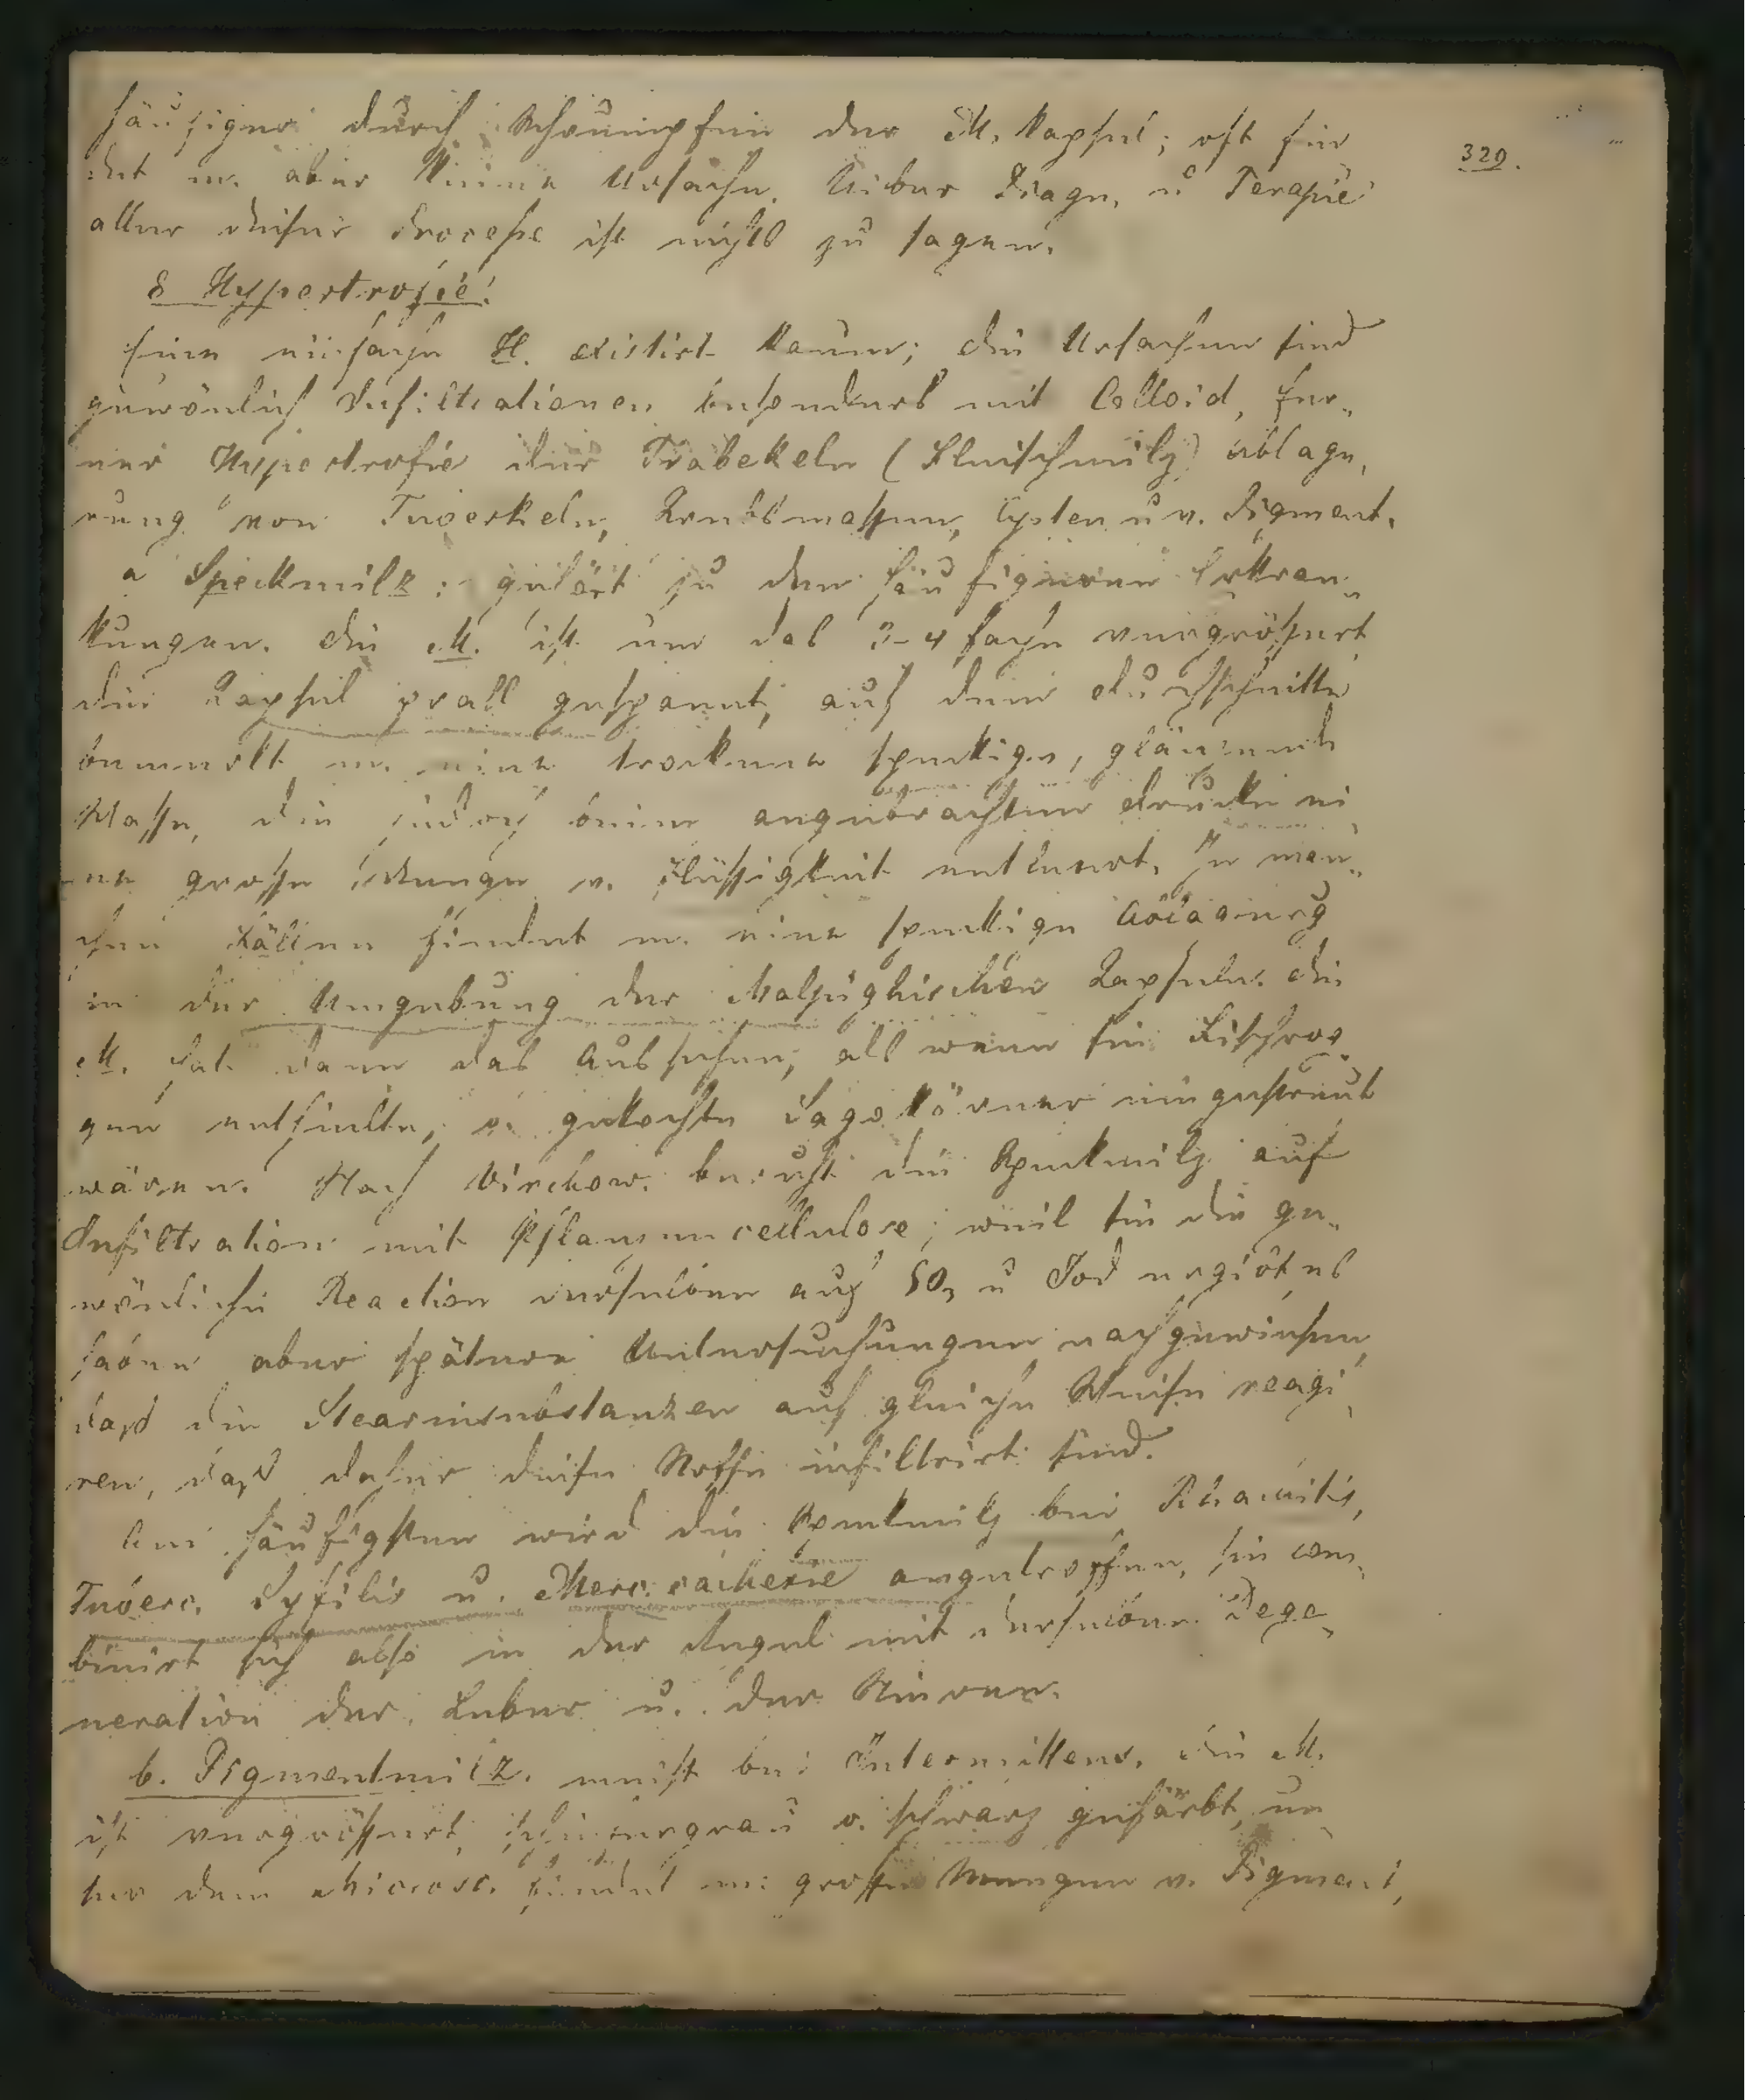 329.
häufiger durch Schrumpfen der M. Kapsel; oft fin
det m. aber keine Ursache. Ueber Diagn. u Terapie
aller dieser Processe ist nichts zu sagen.
8 Hypertrofie.
Eine einfache H. existirt kaum; die Ursachen sind
gewönlich Infiltrationen besonders mit Colloid, fer„
ner Hypertrofie der Trabekeln (Fleischmilz) Ablage„
rung von Tuberkeln, Krebsmassen, Cysten u v. Pigment.
a Speckmilz: gehört zu den häufigeren Erkran„
kungen. Die M. ist um das 3-4 fache vergrößert
die Kapsel prall gespannt, auf dem Durchschnitte
bemerkt m. eine trockene speckige, glänzende
Masse, die jedoch beim angebrachten Drucke ei„
ne große Menge v. Flüssigkeit entleert. In man„
chen Fällen findet m. eine speckige Ablagerug
in der Umgebung der Malpighischen Kapseln. Die
M. hat dann das Aussehen, als wenn sie Fischro„
gen enthielte, o. gekochte Sagokörner eingestreut
wären. Nach Virchow. beruht die Speckmilz auf
Infiltration mit Pflanzencellulose; weil sie die ge„
wönliche Reaction derselben auf SO3 u Jod ergibt, es
haben aber spätere Untersuchungen nachgewiesen,
daß die Stearinsubstanzen auf gleiche Weise reagi„
ren, daß daher diese Stoffe infiltrirt sind.
Am häufigsten wird die Speckmilz bei Rhachitis,
Tuberc. Syfilis u. Merc. cachexie angetroffen, sie com„
binirt sich also in der Regel mit derselben Dege„
neration der Leber u. der Nieren.
b. Pigmentmilz. meist bei Intermittens. Die M.
ist vergrößert, schiefergrau o. schwarz gefärbt, un„
ter dem Microsc. findet m. große Mengen v. Pigment,